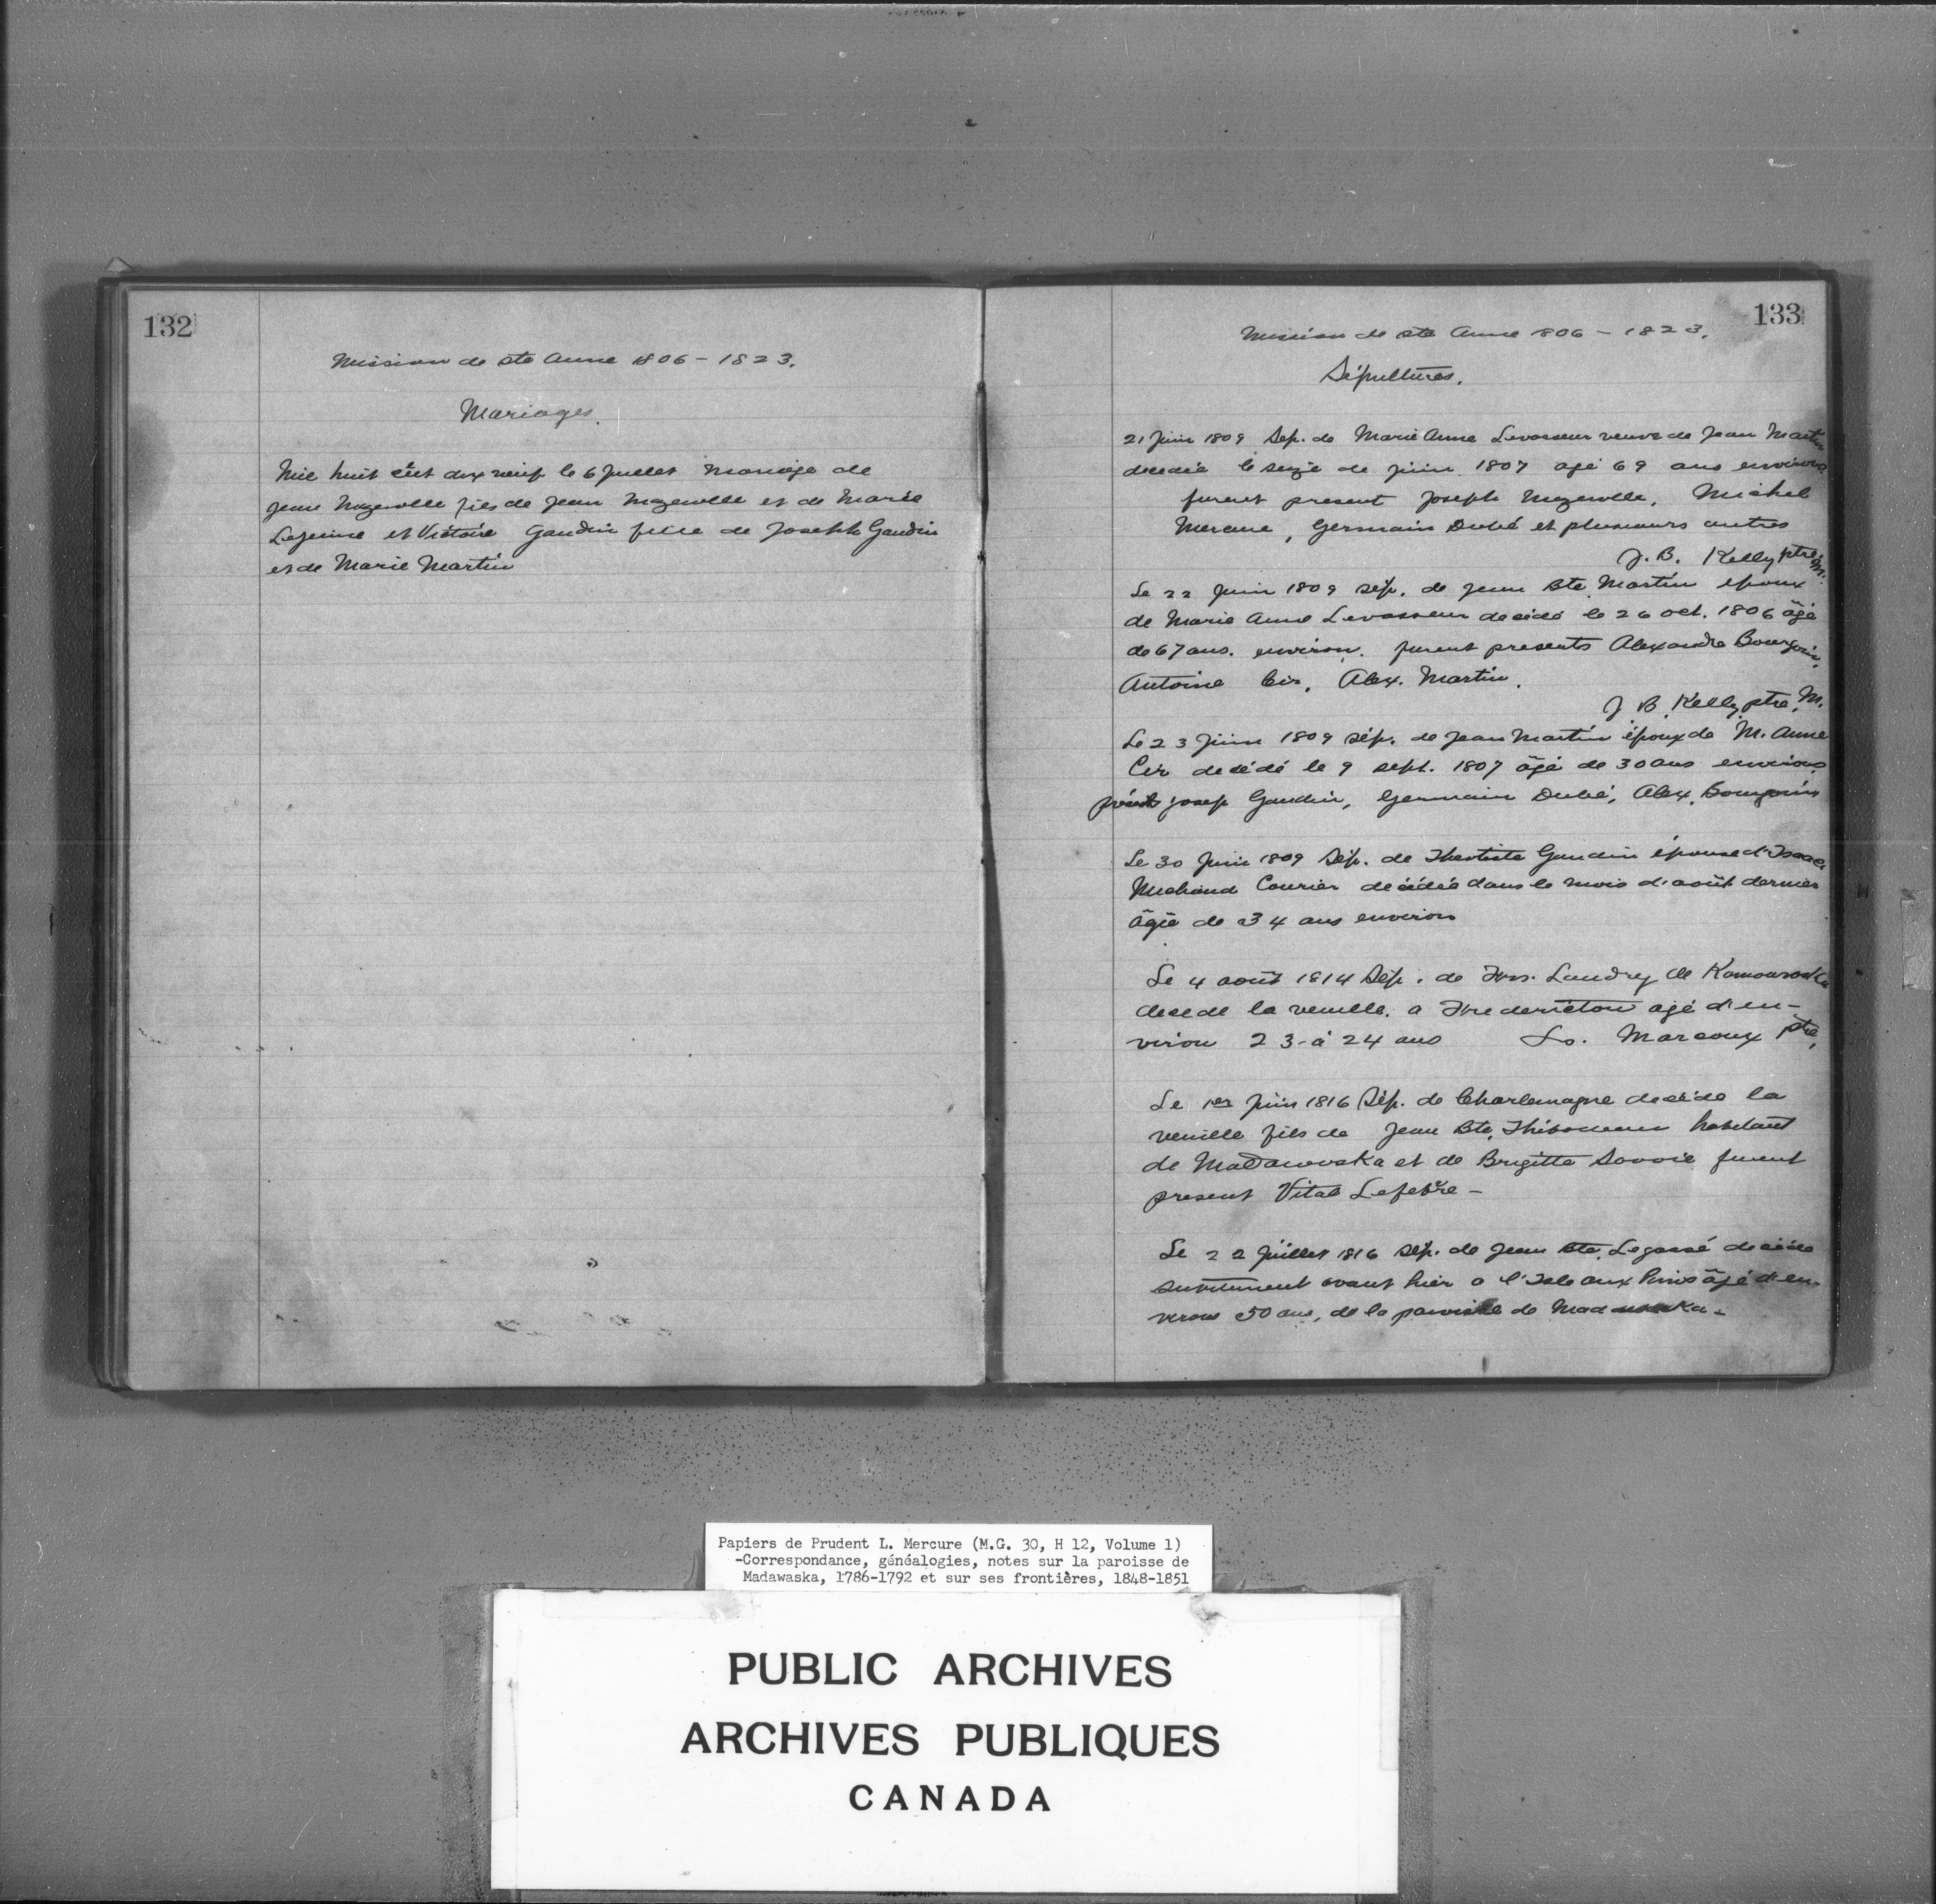 132
Mission de Ste Anne 1806 - 1823.
Mariages.
Mil huit cent dix neuf le 6 Juillet mariage de
Jean Mazerolle fils de Jean Mazerolle et de Marie
Lejeune et Victoire Gaudin fille de Joseph Gaudin
et de Marie Martin
133
Mission de Ste Anne 1806 - 1823.
Sépultures.
21 Juin 1809 Sep. de Marie Anne Levasseur veuve de Jean Martin
decedée le seize de juin 1807 agé 69 ans environ
furent present Joseph Mazerolle, Michel
Mercure, Germain Dubé et plusieurs autres
J. B. Kelly ptre M.
Le 22 Juin 1809 sép. de Jean Bte Martin époux
de Marie Anne Levasseur decédé le 26 oct. 1806 âgé
de 67 ans. environ. furent presents Alexandre Bourgoin,
Antoine Cir, Alex. Martin.
J B. Kelly ptre. M.
Le 23 Juin 1809 sép. de Jean Martin époux de M. Anne
Cir decédé le 9 sept. 1807 âgé de 30 ans environ
Josep Gaudin, Germain Dubé, Alex. Bourgoin
Le 30 Juin 1809 Sép. de Theotiste Gaudin épouse d'Isaac
Michaud Courier decédée dans le mois d'août dernier
âgée de 34 ans environ
Le 4 août 1814 Sép. de Frs. Landry de Kamouraska
decede la veuille. a Fredericton agé d'en-
viron 23-à 24 ans Ls. Marcoux ptre,
Le 1er Juin 1816 Sép. de Charlemagne decédé la
veuille fils de Jean Bte. Thibodeau habitant
de Madawaska et de Brigitte Savoie furent
present Vital Lefebvre -
Le 22 Juillet 1816 sép. de Jean Bte. Legassé decédé
subitement avant hier a l'Isle aux Pins âgé d'en
viron 50 ans, de la paroisse de Madawaska -
Papiers de Prudent L. Mercure (M.G. 30, H 12, Volume 1)
-Correspondance, généalogies, notes sur la paroisse de
Madawaska, 1786-1792 et sur ses frontières, 1848-1851
PUBLIC ARCHIVES
ARCHIVES PUBLIQUES
CANADA